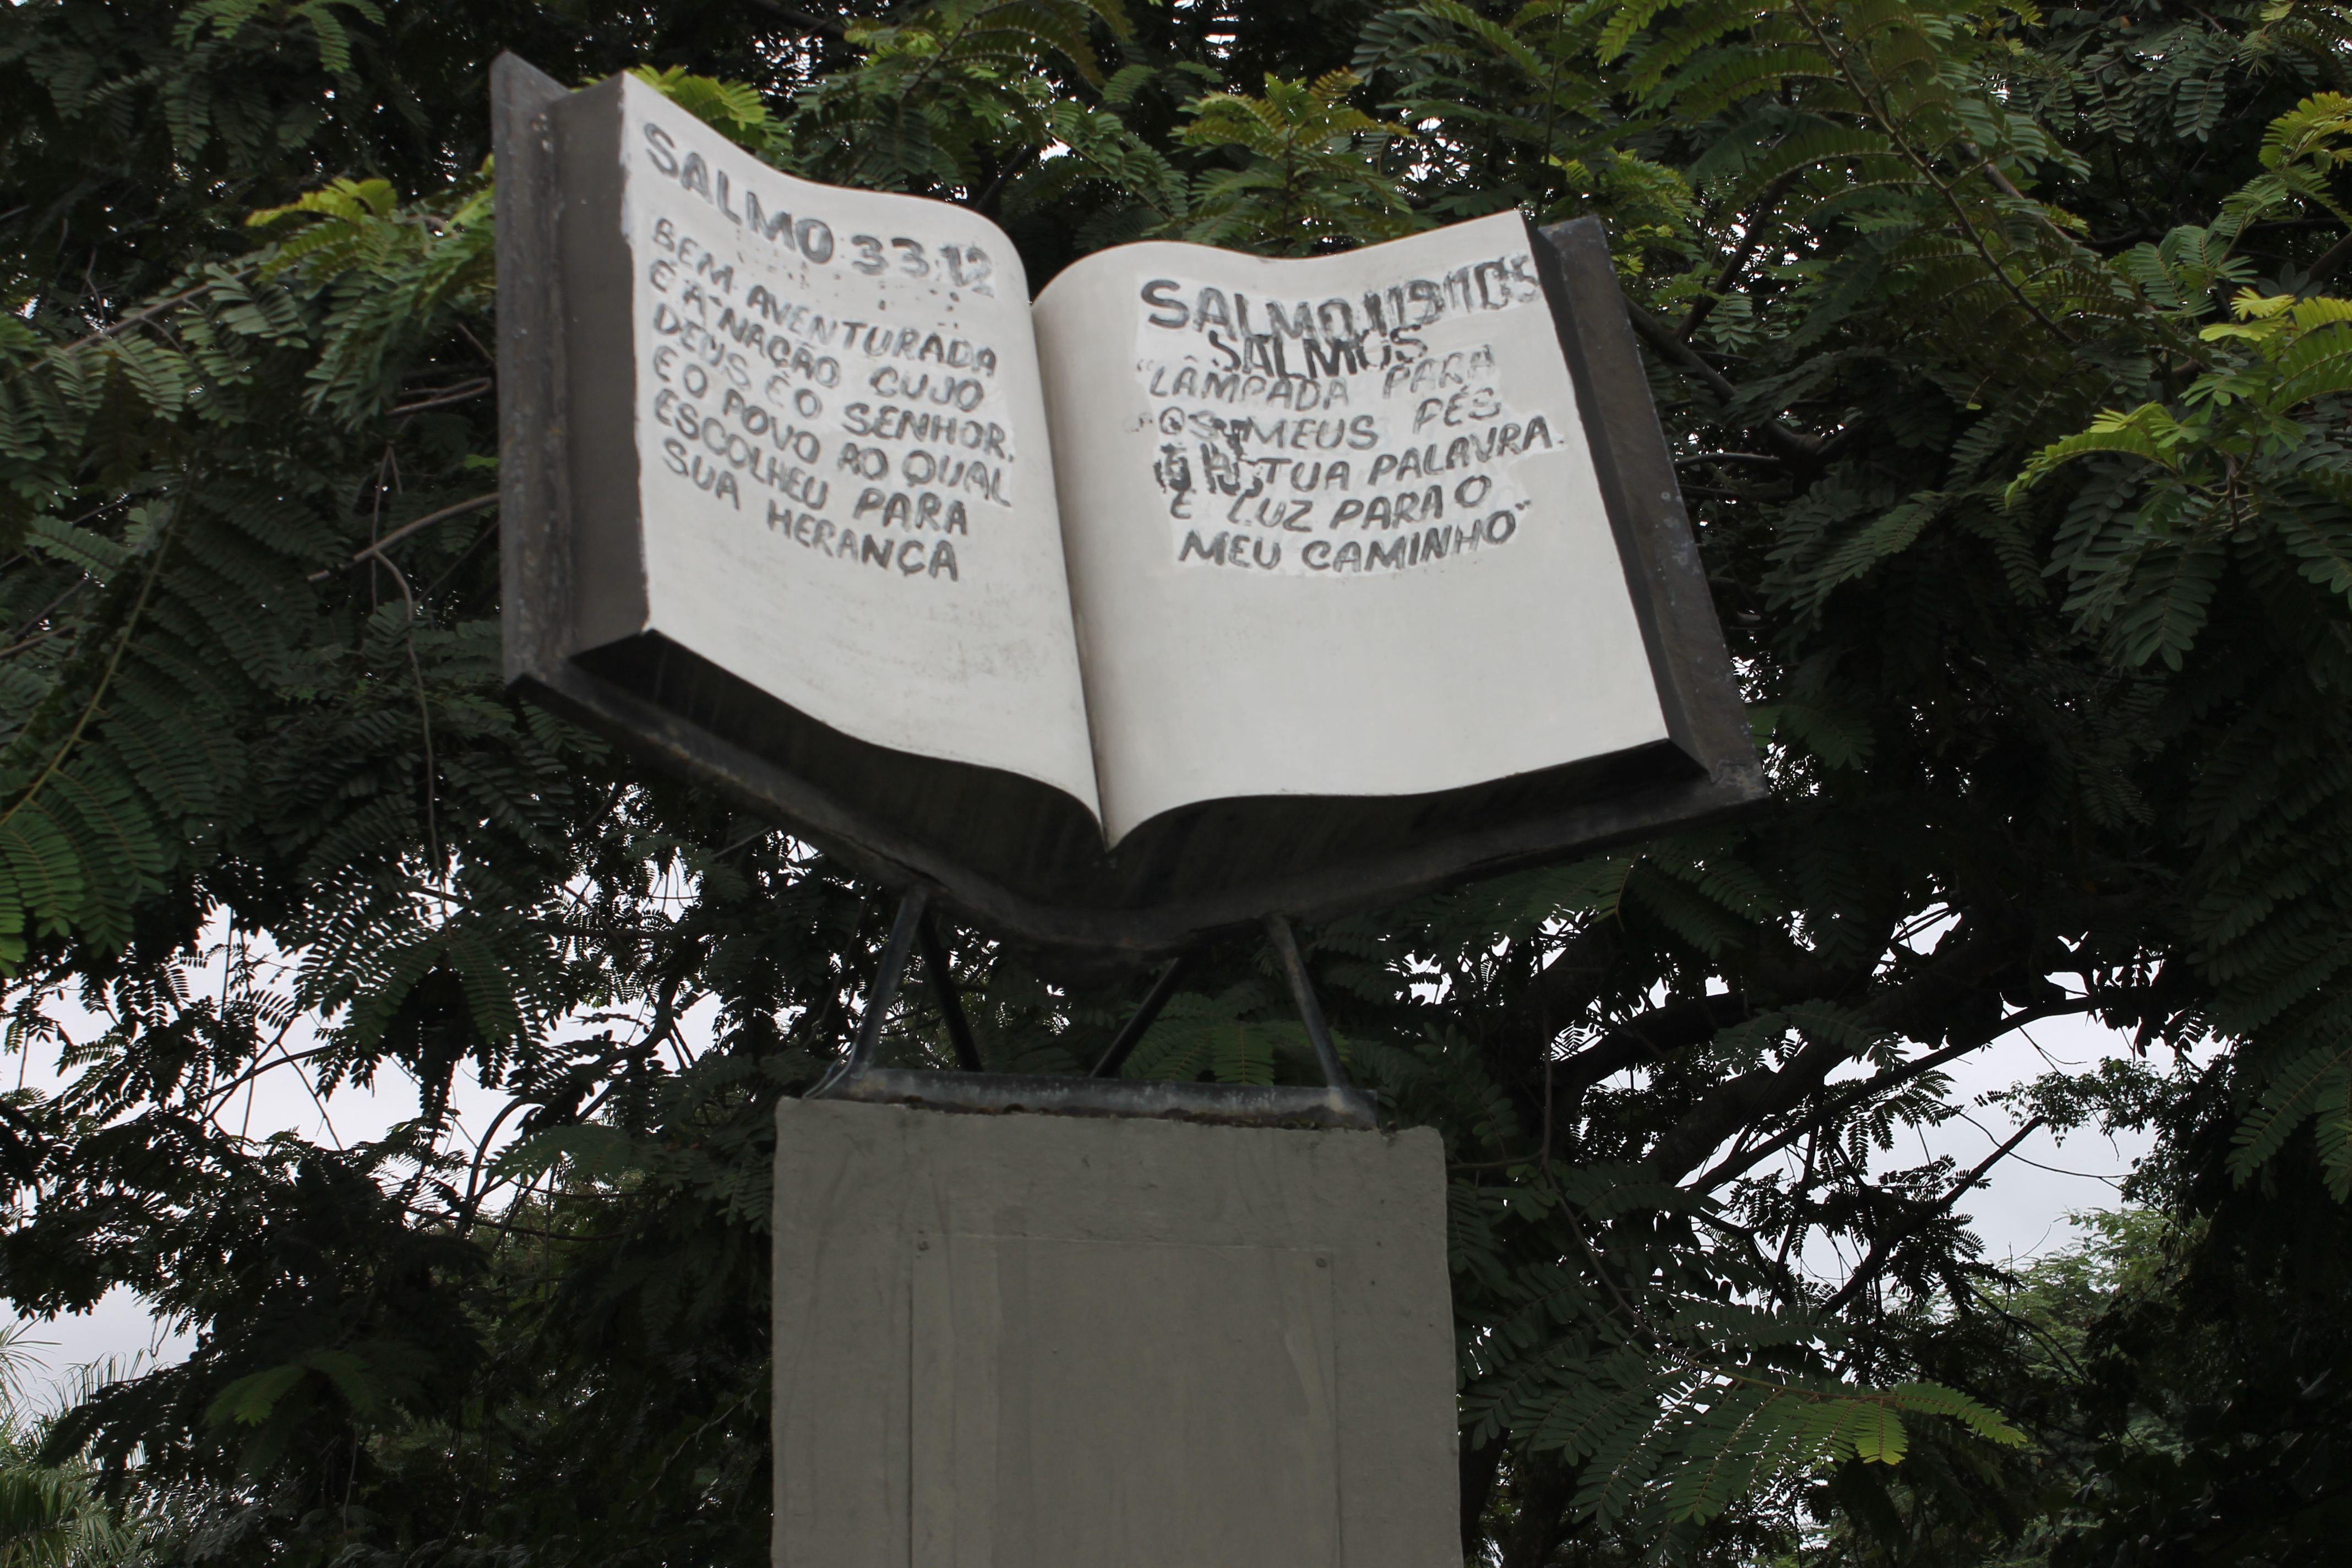 SALMO 33:12
BEM AVENTURADA
É A NAÇÃO CUJO
DEUS É O SENHOR,
E O POVO AO QUAL
ESCOLHEU PARA
SUA HERANÇA
SALMO 119:105
SALMOS
"LÂMPADA PARA
OS MEUS PÉS
TUA PALAVRA.
E LUZ PARA O
MEU CAMINHO"